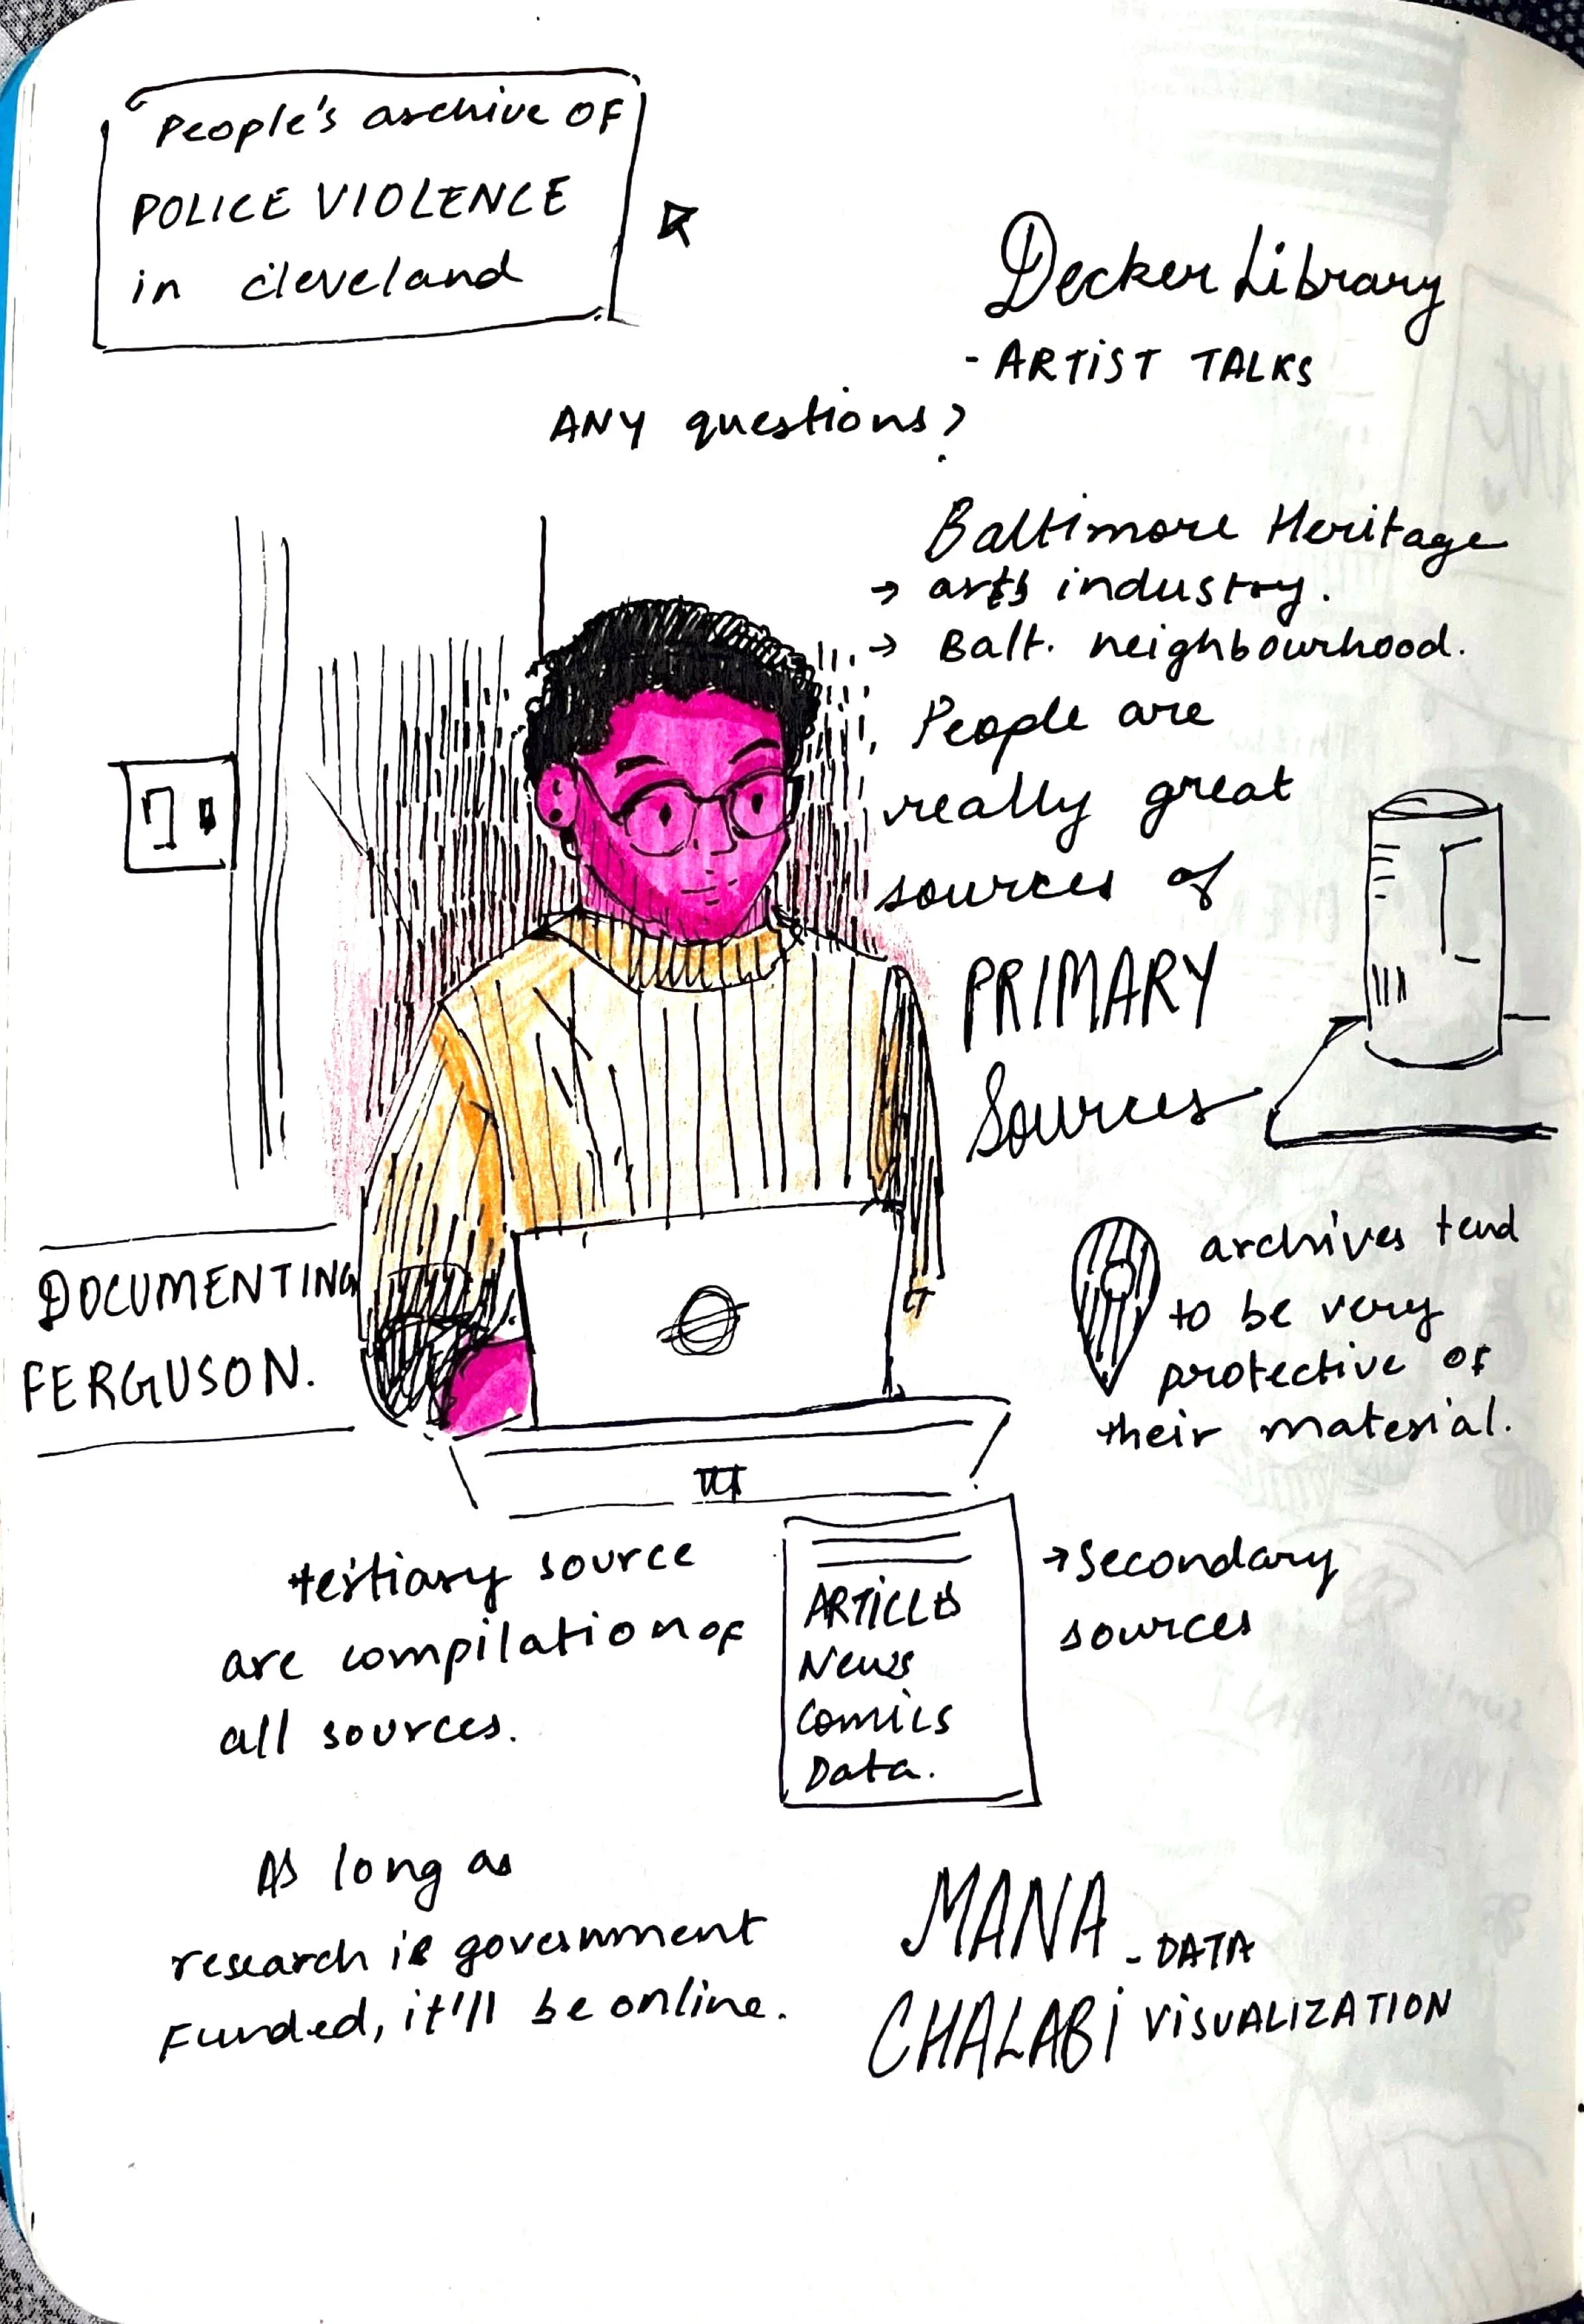 People's archive OF
POLICE VIOLENCE
in cleveland
Decker Library
- ARTIST TALKS
ANY questions?
Baltimore Heritage
→ arts industry.
→ Balt. neighbourhood.
People are
really great
sources of
PRIMARY
Sources
DOCUMENTING
FERGUSON.
archives tend
to be very
protective of
their material.
tertiary source
are compilation of
all sources.
ARTICLES
News
Comics
Data.
→ Secondary
sources
As long as
research is government
Funded, it'll be online.
MANA - DATA
CHALABI VISUALIZATION